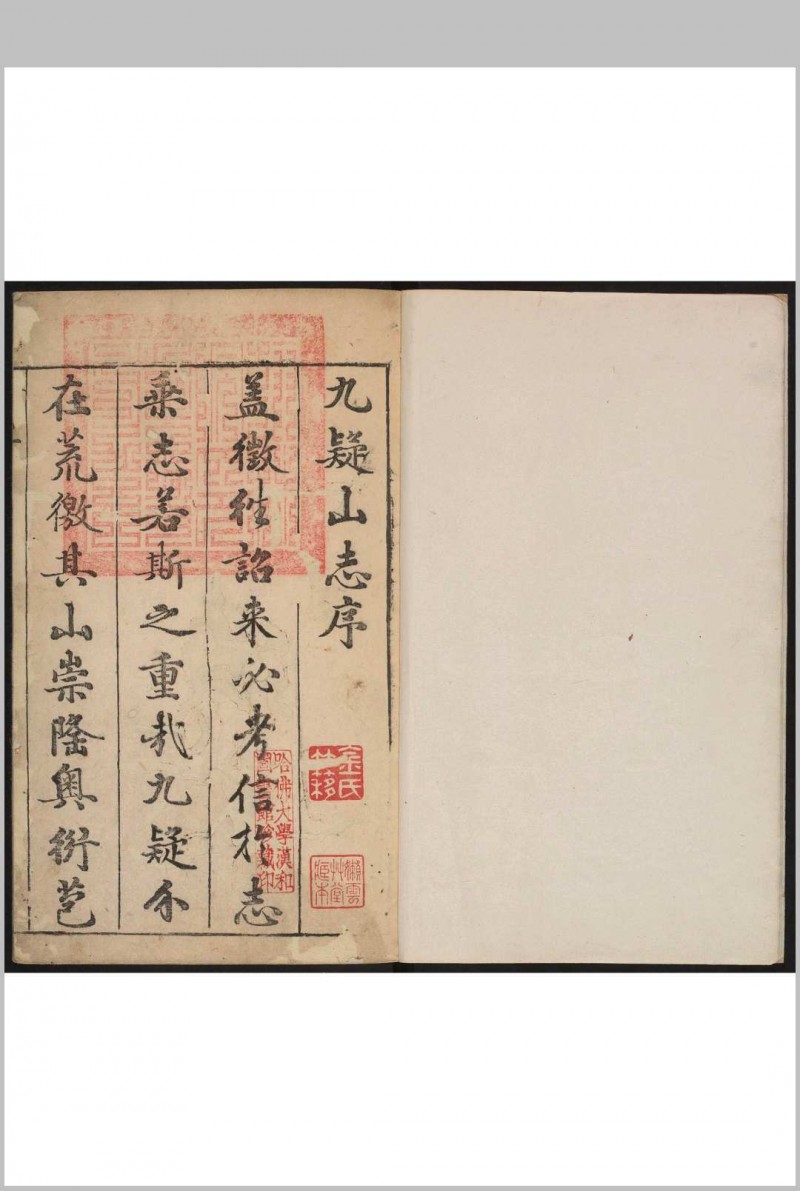 九疑山志序
盖徵徃詔来必考信扵志
乗志若斯之重哉九疑介
在荒徼其山崇隆奥衍
哈佛大學漢和
圖書館珍藏印